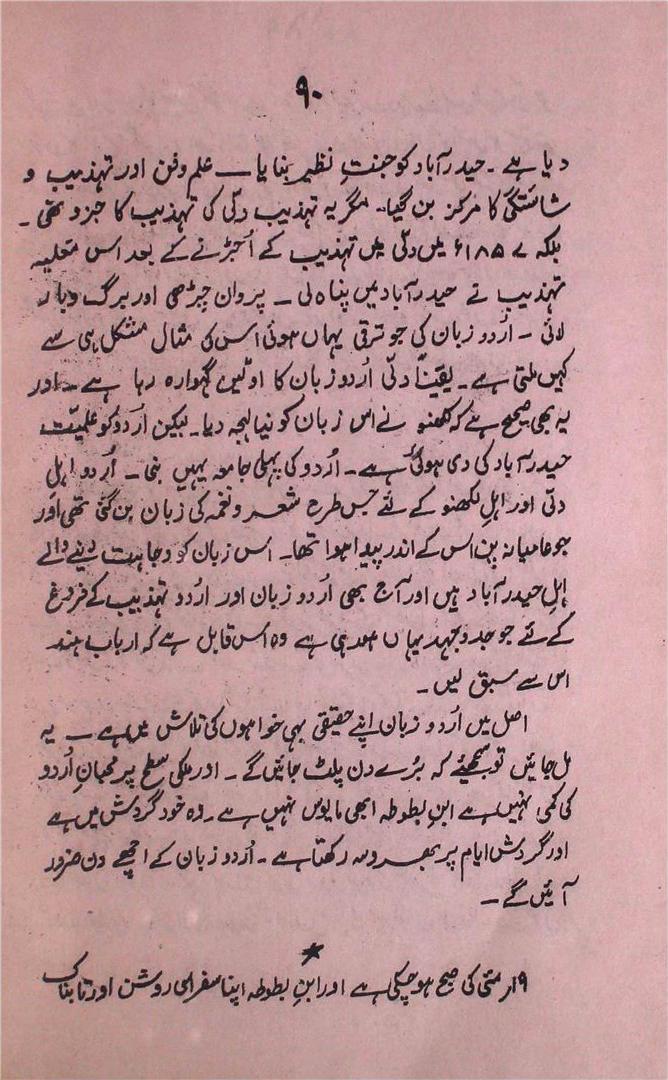 ۹۰
دیا ہے ۔ حیدرآباد کو جنتِ نظیر بنایا ـــ علم وفن اور تہذیب و
شائستگی کا مرکز بن گیا۔ مگر یہ تہذیب دلّی کی تہذیب کا جزو تھی ۔
بلکہ ۱۸۵۷ء میں دلّی میں تہذیب کے اُجڑنے کے بعد اس مغلیہ
تہذیب نے حیدرآباد میں پناہ لی ۔ پروان چڑھی اور برگ وبار
لائی ۔ اُردو زبان کی جو ترقی یہاں ہوئی اس کی مثال مشکل ہی سے
کہیں ملتی ہے ۔ یقیناً دلّی اُردو زبان کا اوّلین گہوارہ رہا ہے ۔ اور
یہ بھی صحیح ہے کہ لکھنو نے اس زبان کو نیا لہجہ دیا۔ لیکن اُردو کو علمیّت
حیدرآباد کی دی ہوئی ہے ۔ اُردو کی پہلی جامعہ یہیں بنی ۔ اُردو اہلِ
دلّی اور اہلِ لکھنو کے لئے جس طرح شعر و نغمہ کی زبان بن گئی تھی اور
جو عامیانہ پن اس کے اندر پیدا ہوا تھا۔ اس زبان کو وجاہت دینے والے
اہلِ حیدرآباد ہیں اور آج بھی اُردو زبان اور اُردو تہذیب کے فروغ
کے لئے جو جدوجہد یہاں ہو رہی ہے وہ اس قابل ہے کہ ارباب ہند
اس سے سبق لیں ۔
اصل میں اُردو زبان اپنے حقیقی بہی خواہوں کی تلاش میں ہے ۔ یہ
مل جائیں تو سمجھئے کہ بُرے دن پلٹ جائیں گے ۔ اور ملکی سطح پر محبانِ اُردو
کی کمی نہیں ہے ابنِ بطوطہ ابھی مایوس نہیں ہے ۔ وہ خود گردش میں ہے
اور گردشِ ایام پر بھروسہ رکھتا ہے ۔ اُردو زبان کے اچھے دن ضرور
آئیں گے ۔
★
۱۹؍ مئی کی صبح ہو چکی ہے اور ابنِ بطوطہ اپنا سفر اسی روشن اور تابناک